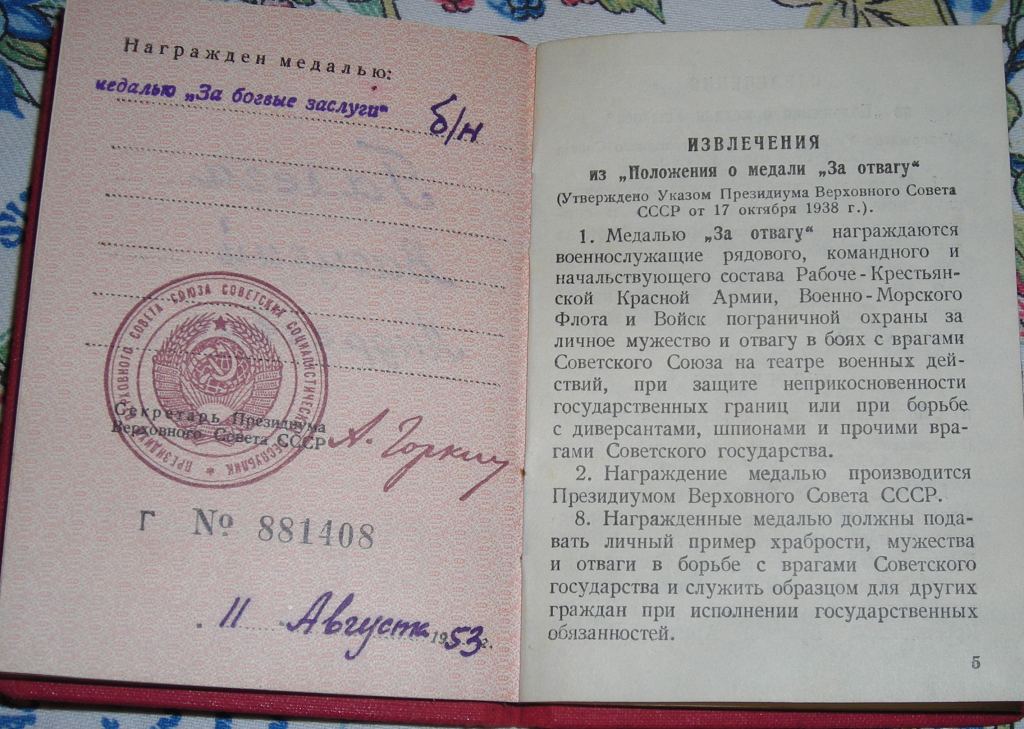 Награжден медалью:
медалью „За боевые заслуги“ б/н
ПРЕЗИДИУМ ВЕРХОВНОГО СОВЕТА СОЮЗА СОВЕТСКИХ СОЦИАЛИСТИЧЕСКИХ РЕСПУБЛИК
Секретарь Президиума
Верховного Совета СССР А. Горкин
Г № 881408
11 Августа 1953 г.
ИЗВЛЕЧЕНИЯ
из „Положения о медали „За отвагу“
(Утверждено Указом Президиума Верховного Совета
СССР от 17 октября 1938 г.).
1. Медалью „За отвагу“ награждаются
военнослужащие рядового, командного и
начальствующего состава Рабоче-Крестьян-
ской Красной Армии, Военно-Морского
Флота и Войск пограничной охраны за
личное мужество и отвагу в боях с врагами
Советского Союза на театре военных дей-
ствий, при защите неприкосновенности
государственных границ или при борьбе
с диверсантами, шпионами и прочими вра-
гами Советского государства.
2. Награждение медалью производится
Президиумом Верховного Совета СССР.
8. Награжденные медалью должны пода-
вать личный пример храбрости, мужества
и отваги в борьбе с врагами Советского
государства и служить образцом для других
граждан при исполнении государственных
обязанностей.
5